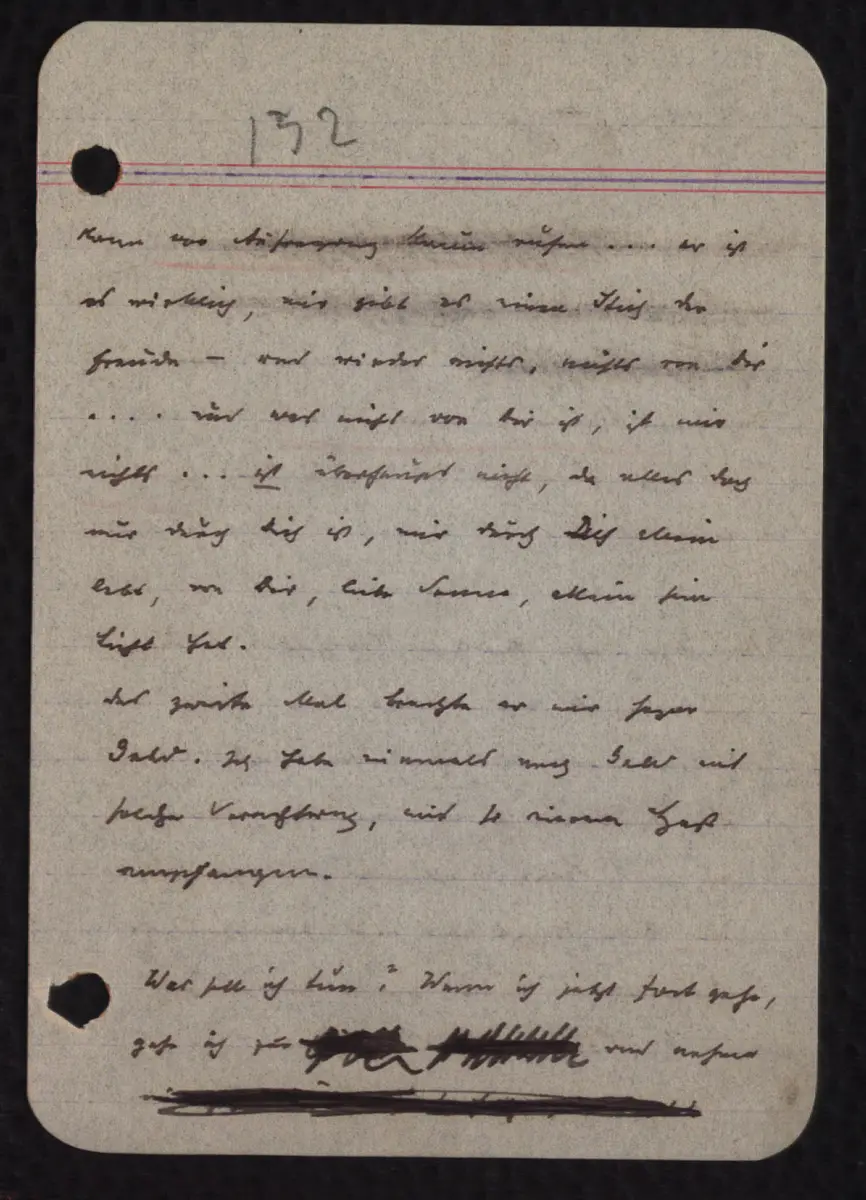 132
kann vor Aufregung kaum rufen .... er ist
es wirklich, mir gibt es einen Stich der
Freude – und wieder nichts, nichts von Dir
.... und was nicht von Dir ist, ist mir
nichts ... ist überhaupt nicht, da alles doch
nur durch Dich ist, mir durch Dich allein
lebt, von Dir, liebe Sonne, allein sein
Licht hat.
das zweite Mal brachte er mir sogar
Geld. Ich habe niemals noch Geld mit
solcher Verachtung, mit so einem Haß
empfangen.
Was soll ich tun? Wenn ich jetzt fort gehe,
gehe ich zur und nehme